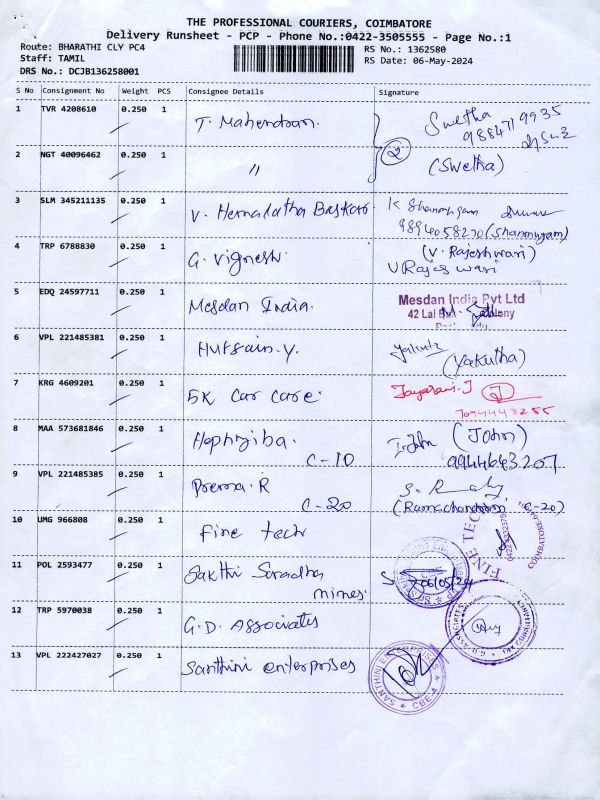 THE PROFESSIONAL COURIERS, COIMBATORE
Delivery Runsheet - PCP - Phone No.:0422-3505555 - Page No.:1
Route: BHARATHI CLY PC4 RS No.: 1362580
Staff: TAMIL RS Date: 06-May-2024
DRS No.: DCJB136258001
S No Consignment No Weight PCS Consignee Details Signature
1 TVR 4208610 0.250 1 T. Mahendran. Swetha
2 NGT 40096462 0.250 1 〃 2 (Swetha)
3 SLM 345211135 0.250 1 V. Hemalatha Baskar K Shanmugam
9894058270 (Shanmugam)
4 TRP 6788830 0.250 1 G. Vignesh. (V. Rajeshwari)
V Rajeswari
5 EDQ 24597711 0.250 1 Mesdan India. Mesdan India Pvt Ltd
42 Lal
6 VPL 221485381 0.250 1 Hussain. Y. (Yakutha)
7 KRG 4609201 0.250 1 5K Car Care. Jayarani. J
7094448255
8 MAA 573681846 0.250 1 Hephziba. C-10 John (John)
9944643207
9 VPL 221485385 0.250 1 Prema. R C-20
(Ramachandran C-20)
10 UMG 966808 0.250 1 Fine tech FINE TECH
COIMBATORE
11 POL 2593477 0.250 1 Sakthi Saradha mines 06/05/24
12 TRP 5970038 0.250 1 G.D. Associates
13 VPL 222427027 0.250 1 Santhini enterprises SANTHINI ENTERPRISES
CBE-4